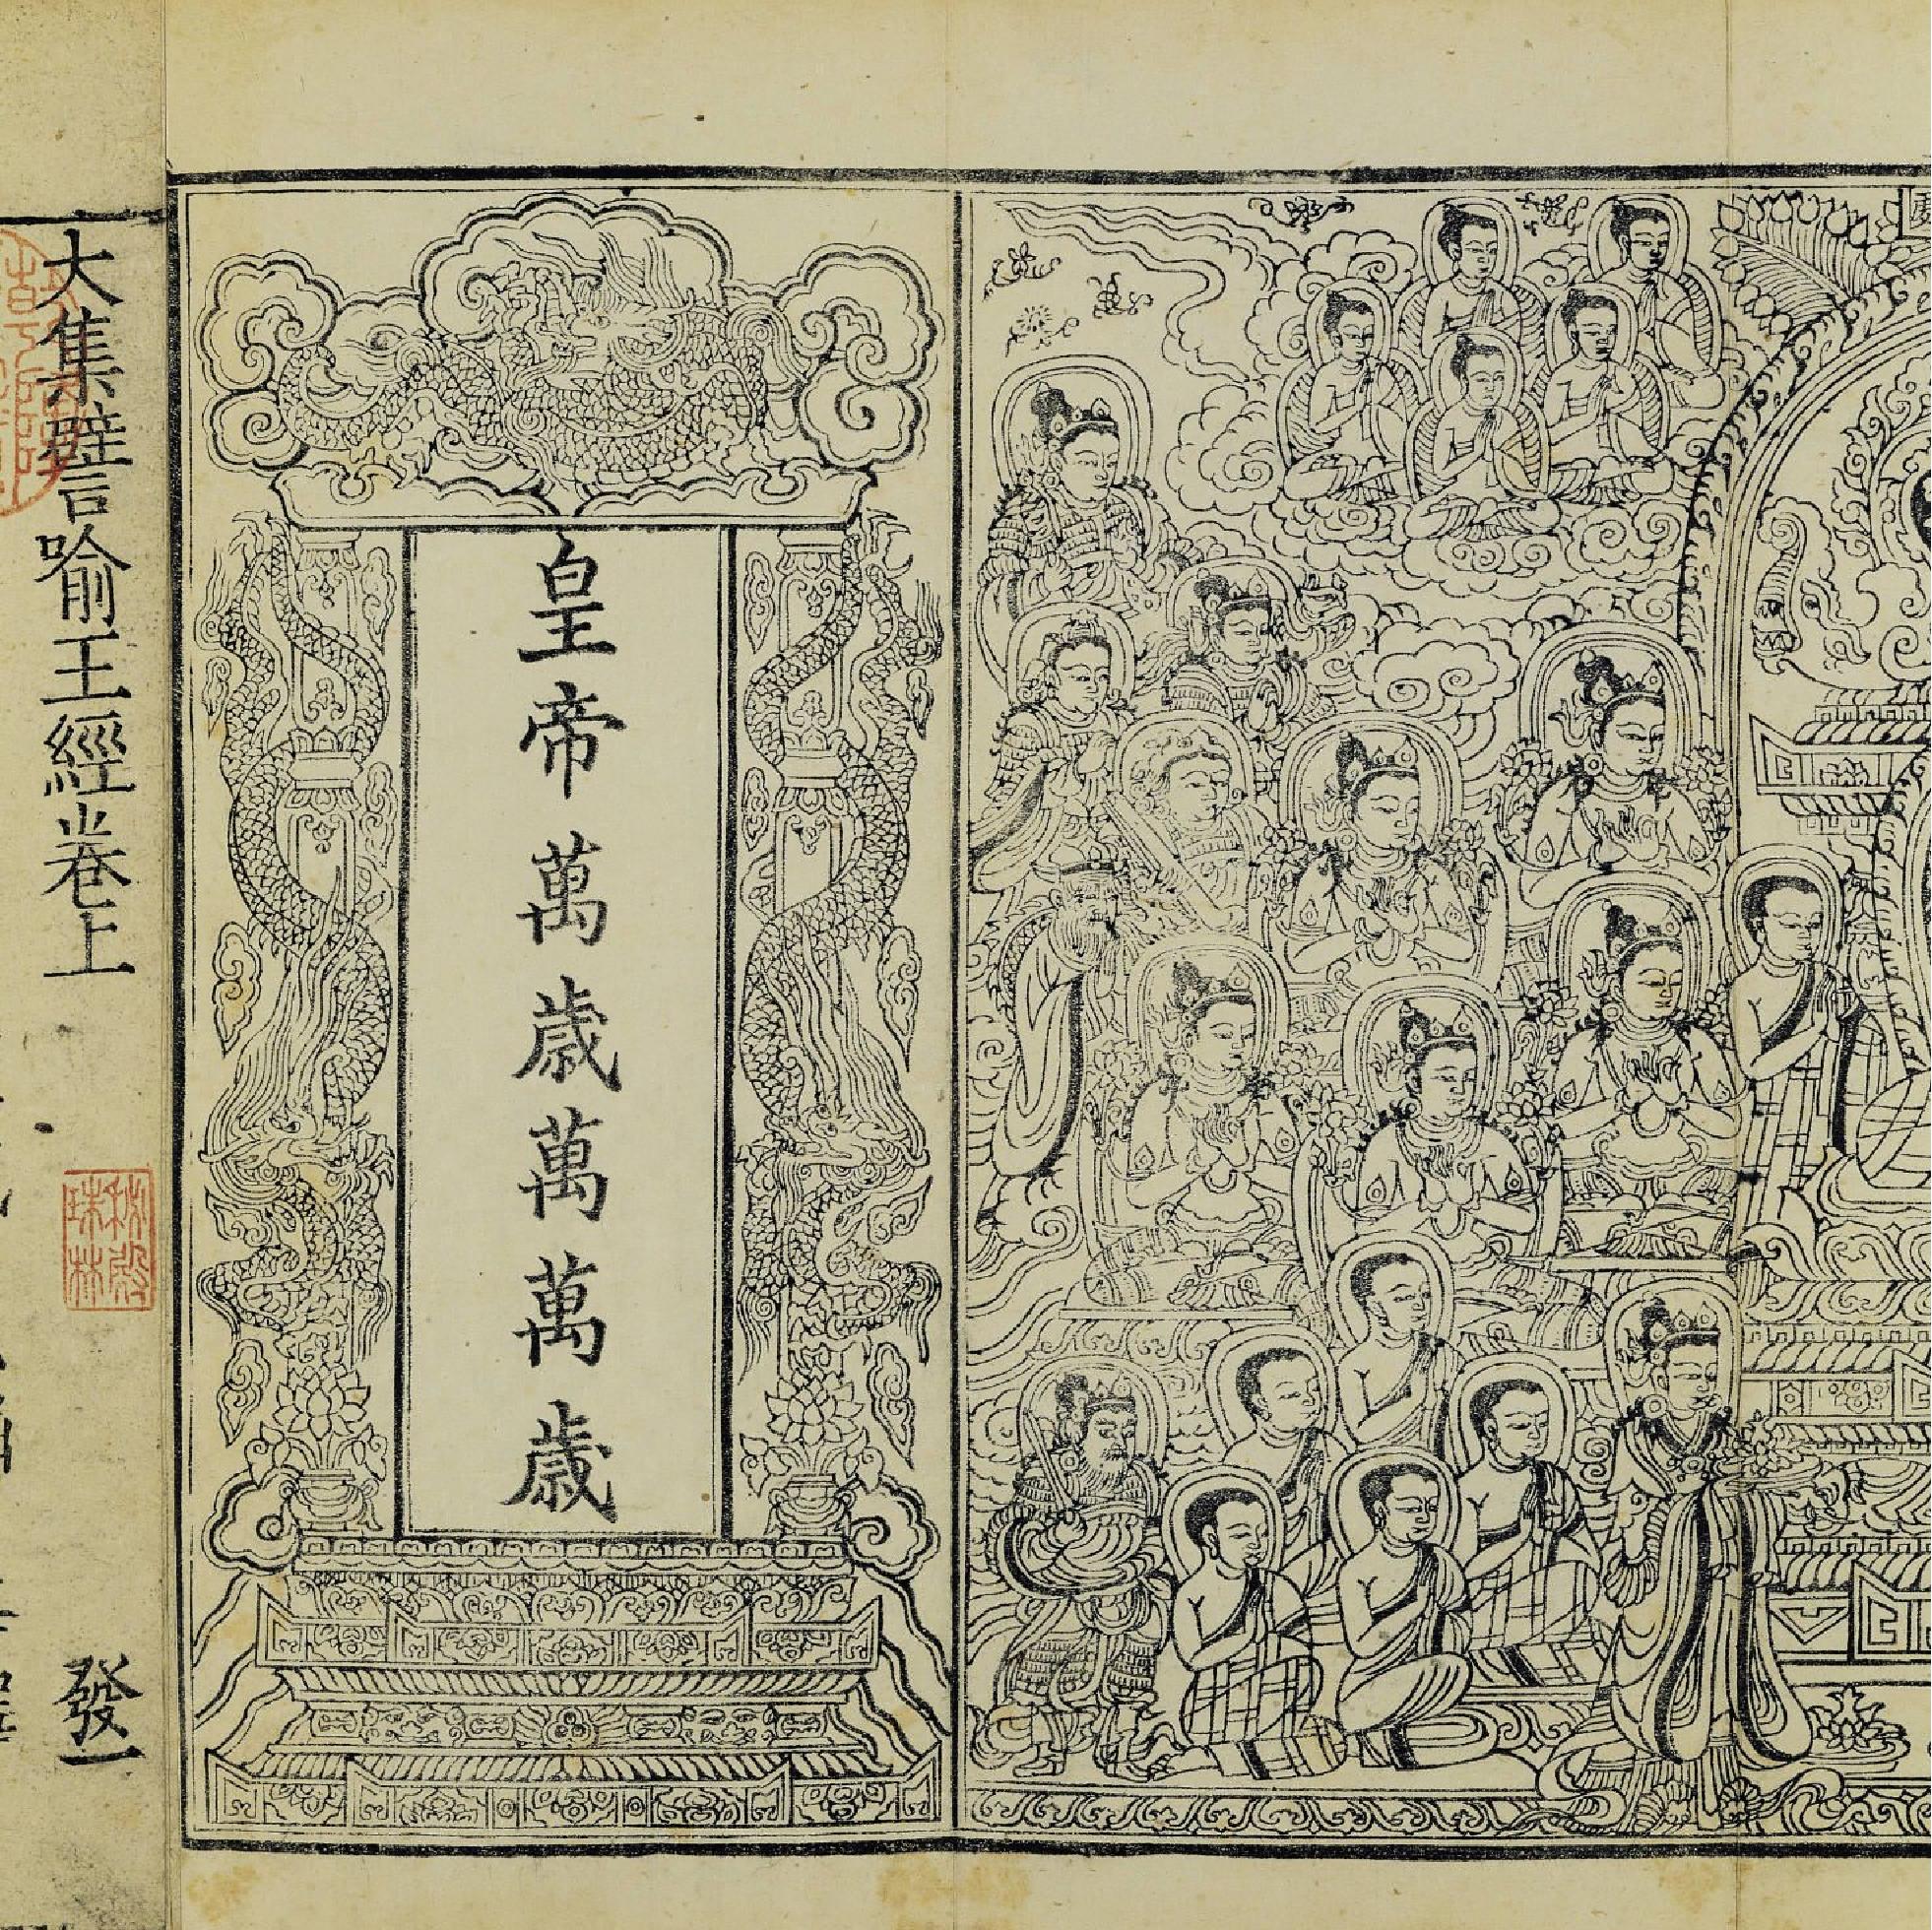 皇帝萬歲萬萬歲
大集譬喻王經卷上
發一
秘殿
珠林